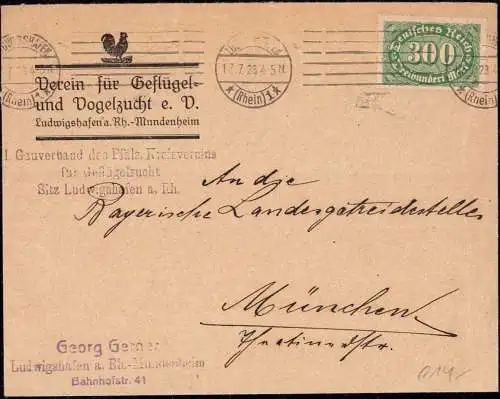 LUDWIGSHAFEN
7.23.4-5N
(Rhein)
LUDWIGSHAFEN
17.7.23.4-5N
★(Rhein)1★
Deutsches Reich
300
Dreihundert Mark
Verein für Geflügel-
und Vogelzucht e. V.
Ludwigshafen a. Rh.-Mundenheim
I. Gauverband des Pfälz. Kreisvereins
für Geflügelzucht
Sitz Ludwigshafen a. Rh.
An die
Bayerische Landesgetreidestelle
München
Georg
Ludwigshafen a. Rh.-Mundenheim
Bahnhofstr. 41